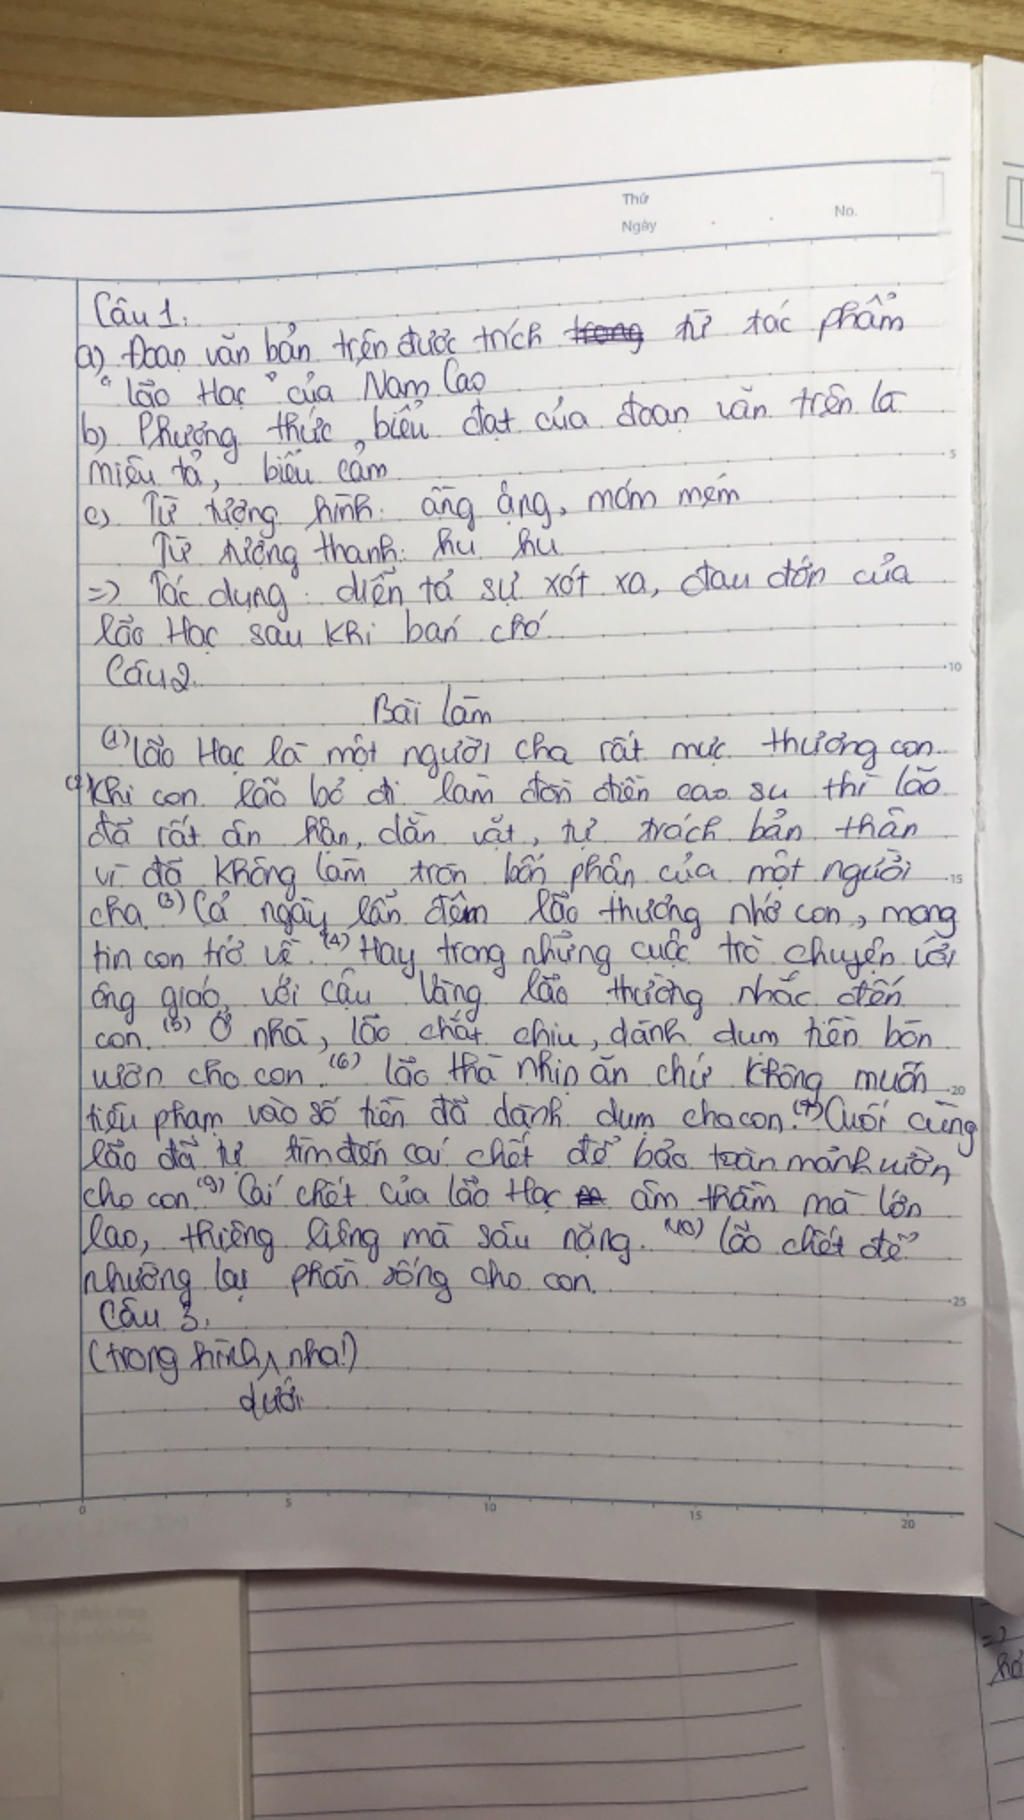 Thứ
Ngày
No.
Câu 1:
a) Đoạn văn bản trên được trích trong từ tác phẩm
"Lão Hạc" của Nam Cao
b) Phương thức biểu đạt của đoạn văn trên là
miêu tả, biểu cảm
c) Từ tượng hình: ầng ậng, móm mém
Từ tượng thanh: hu hu
=> Tác dụng: diễn tả sự xót xa, đau đớn của
lão Hạc sau khi bán chó
Câu 2.
Bài làm
(1) Lão Hạc là một người cha rất mực thương con.
(2) Khi con lão bỏ đi làm đồn điền cao su thì lão
đã rất ân hận, dằn vặt, tự trách bản thân
vì đã không làm tròn bổn phận của một người
cha. (3) Cả ngày lẫn đêm lão thương nhớ con, mong
tin con trở về. (4) Hay trong những cuộc trò chuyện với
ông giáo, với cậu Vàng lão thường nhắc đến
con. (5) Ở nhà, lão chắt chiu, dành dụm tiền bòn
vườn cho con. (6) Lão thà nhịn ăn chứ không muốn
tiêu phạm vào số tiền đã dành dụm cho con. (7) Cuối cùng
lão đã tự tìm đến cái chết để bảo toàn mảnh vườn
cho con. (9) Cái chết của lão Hạc âm thầm mà lớn
lao, thiêng liêng mà sâu nặng. (10) Lão chết để
nhường lại phần sống cho con.
Câu 3.
(trong hình dưới nha!)
5
10
15
20
25
0
5
10
15
20
=>